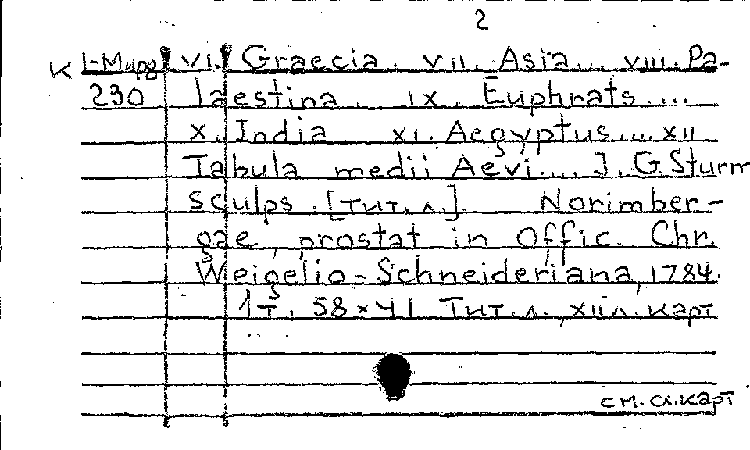 2
К 1-Мирз vi. Graecia. vii. Asia... viii. Pa-
230 laestina. ix. Euphrats....
x. India xi. Aegyptus.... xii
Tabula medii Aevi.... J. G. Sturm
sculps. [тит. л.]. Norimber-
gae, prostat in offic. Chr.
Weigelio-Schneideriana, 1784.
1т, 58×41 Тит. л., xii л. карт
см. сл. карт